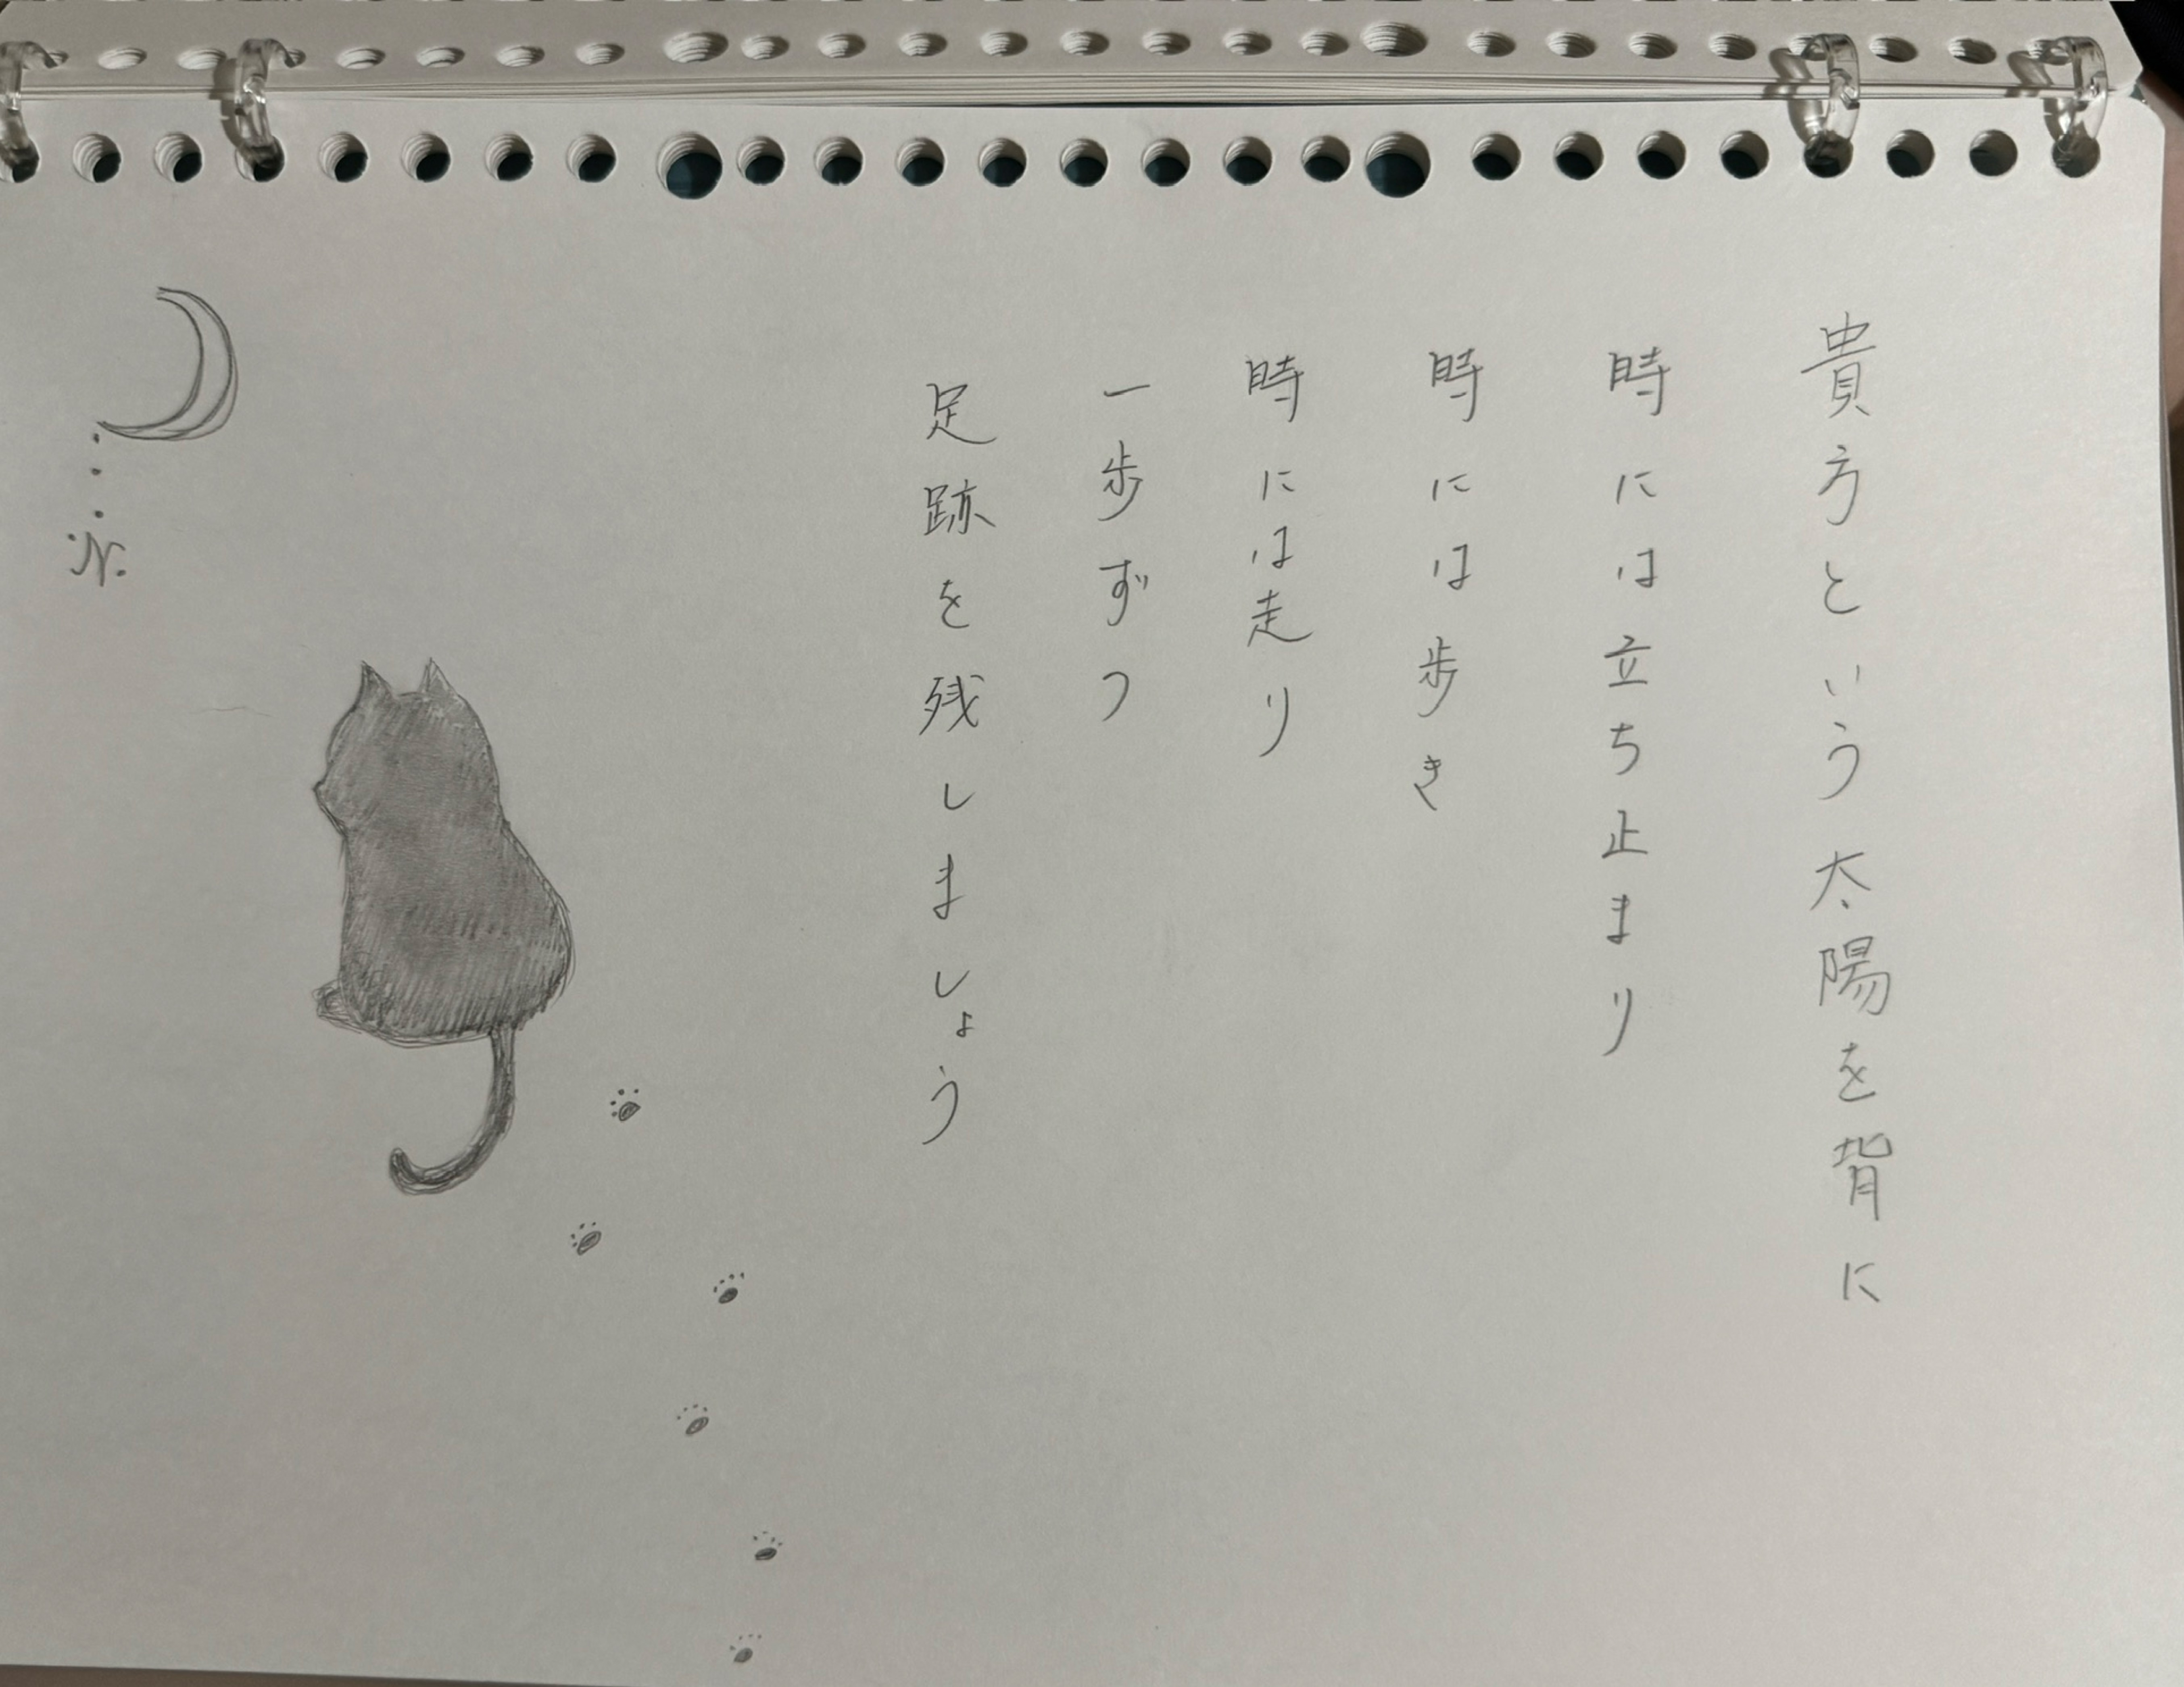 貴方という太陽を背に
時には立ち止まり
時には歩き
時には走り
一歩ずつ
足跡を残しましょう
N.